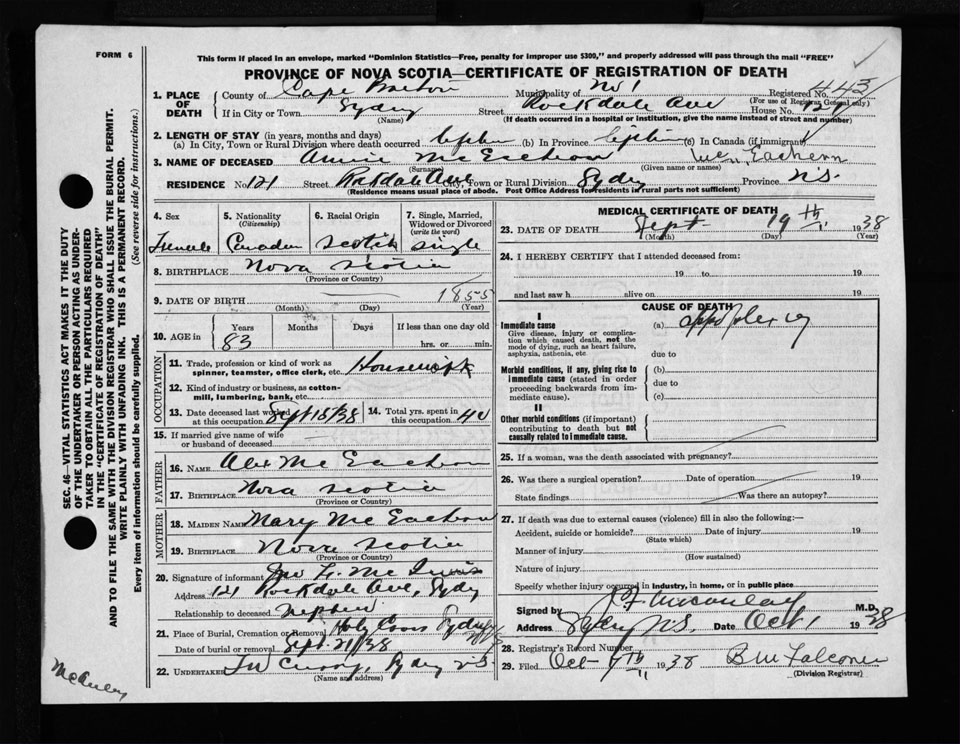 FORM 6
This form if placed in an envelope, marked "Dominion Statistics—Free, penalty for improper use $300," and properly addressed will pass through the mail "FREE"
PROVINCE OF NOVA SCOTIA—CERTIFICATE OF REGISTRATION OF DEATH
1. PLACE OF DEATH
County of Cape Breton Municipality of No 1 Registered No. 443
(For use of Registrar General only)
If in City or Town Sydney Street Rockdale Ave House No. 121
(Name) (If death occurred in a hospital or institution, give the name instead of street and number)
2. LENGTH OF STAY (in years, months and days)
(a) In City, Town or Rural Division where death occurred (b) In Province (c) In Canada (if immigrant)
3. NAME OF DECEASED Annie McEachern McEachern
(Surname) (Given name or names)
RESIDENCE No 121 Street Rockdale Ave City, Town or Rural Division Sydney Province N.S.
(Residence means usual place of abode. Post Office Address for residents in rural parts not sufficient)
4. Sex Female
5. Nationality (Citizenship) Canadian
6. Racial Origin Scotch
7. Single, Married, Widowed or Divorced (write the word) Single
8. BIRTHPLACE Nova Scotia
(Province or Country)
9. DATE OF BIRTH 1855
(Month) (Day) (Year)
10. AGE in Years 83 Months Days If less than one day old
hrs. or min.
OCCUPATION
11. Trade, profession or kind of work as spinner, teamster, office clerk, etc. Housework
12. Kind of industry or business, as cotton-mill, lumbering, bank, etc.
13. Date deceased last worked at this occupation Sept 18/38
14. Total yrs. spent in this occupation 40
15. If married give name of wife or husband of deceased
FATHER
16. NAME Alex McEachern
17. BIRTHPLACE Nova Scotia
(Province or Country)
MOTHER
18. MAIDEN NAME Mary McEachern
19. BIRTHPLACE Nova Scotia
(Province or Country)
20. Signature of informant
Address 121 Rockdale Ave, Sydney
Relationship to deceased Nephew
21. Place of Burial, Cremation or Removal Holy Cross Sydney
Date of burial or removal Sept. 21/38
22. UNDERTAKER Sydney N.S.
(Name and address)
MEDICAL CERTIFICATE OF DEATH
23. DATE OF DEATH Sept 19th 1938
(Month) (Day) (Year)
24. I HEREBY CERTIFY that I attended deceased from:
19 to 19
and last saw h alive on 19
CAUSE OF DEATH
I
Immediate cause
Give disease, injury or complication which caused death, not the mode of dying, such as heart failure, asphyxia, asthenia, etc
(a) apoplexy
due to
Morbid conditions, if any, giving rise to immediate cause (stated in order proceeding backwards from immediate cause).
(b)
due to
(c)
II
Other morbid conditions (if important) contributing to death but not causally related to immediate cause.
25. If a woman, was the death associated with pregnancy?
26. Was there a surgical operation? Date of operation 19
State findings Was there an autopsy?
27. If death was due to external causes (violence) fill in also the following:—
Accident, suicide or homicide? Date of injury 19
(State which)
Manner of injury
(How sustained)
Nature of injury
Specify whether injury occurred in industry, in home, or in public place
Signed by M.D.
Address Sydney N.S. Date Oct 1 1938
28. Registrar's Record Number
29. Filed Oct 1938 B M Falconer
(Division Registrar)
SEC. 46—VITAL STATISTICS ACT MAKES IT THE DUTY
OF THE UNDERTAKER OR PERSON ACTING AS UNDER-
TAKER TO OBTAIN ALL THE PARTICULARS REQUIRED
IN THE "CERTIFICATE OF REGISTRATION OF DEATH"
AND TO FILE THE SAME WITH THE DIVISION REGISTRAR WHO SHALL ISSUE THE BURIAL PERMIT.
WRITE PLAINLY WITH UNFADING INK. THIS IS A PERMANENT RECORD.
Every item of information should be carefully supplied. (See reverse side for instructions.)